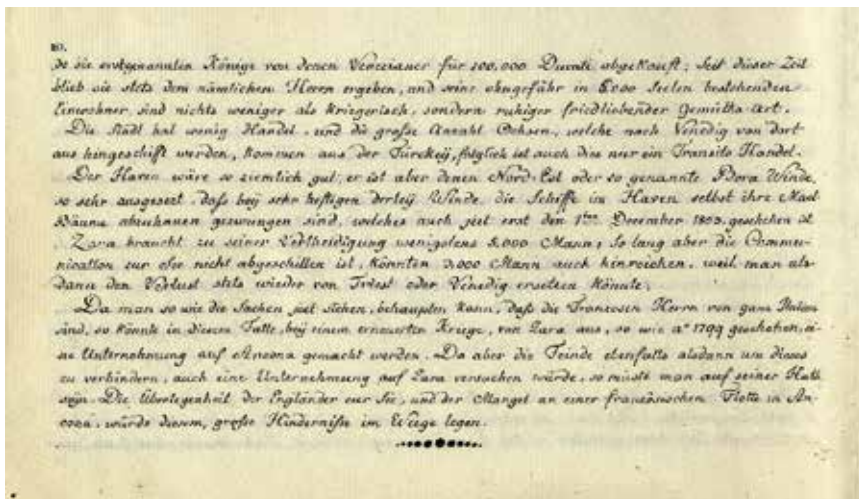 80.
de sie erstgenannten Könige von denen Venezianer für 100,000 Ducati abgekauft; Seit dieser Zeit
blieb sie stets dem nämlichen Herrn ergeben, und seine ohngefähr in 5000 Seelen bestehenden
Einwohner sind nichts weniger als kriegerisch, sondern ruhiger friedliebender Gemüths-Art.
Die Stadt hat wenig Handel, und die große Anzahl Ochsen, welche nach Venedig von dort
aus hingeschift werden, kommen aus der Türckeij, folglich ist auch dies nur ein Transito Handel.
Der Haven wäre so ziemlich gut, er ist aber denen Nord-Est oder so genannte Bora Winde,
so sehr ausgesezt, daß beij sehr heftigen derleij Winde, die Schiffe im Haven selbst ihre Mast
Bäume abzuhauen gezwungen sind, welches auch jezt erst den 1ten December 1803. geschehen ist
Zara braucht zu seiner Vertheidigung wenigstens 5,000 Mann; So lang aber die Commu-
nication zur See nicht abgeschnitten ist, könnten 3,000 Mann auch hinreichen, weil man als-
dann den Verlust stets wieder von Triest oder Venedig ersetzen könnte.
Da man so wie die Sachen jezt stehen, behaupten kann, daß die Franzosen Herrn von ganz Italien
sind, so könnte in diesem Falle, beij einem erneuerten Kriege, von Zara aus, so wie ao 1799 geschehen, ei-
ne Unternehmung auf Ancona gemacht werden. Da aber die Feinde ebenfalls alsdann um dieses
zu verhindern, auch eine Unternehmung auf Zara versuchen würde, so müsst man auf seiner Huth
seijn. Die Überlegenheit der Engländer zur See, und der Mangel an einer französischen Flotte in An-
cona, würde diesem, große Hinderniße im Weege legen.